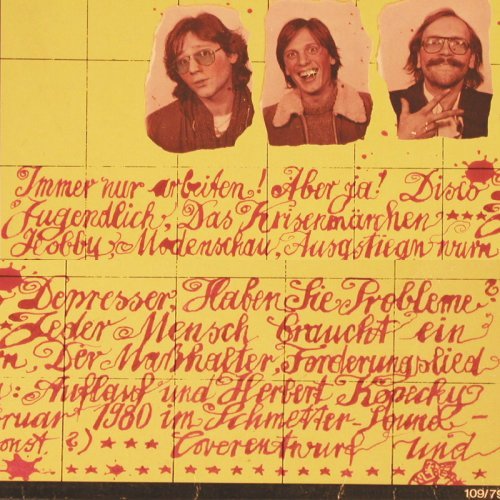 Immer nur arbeiten! Aber ja! Disco
Jugendlich, Das Krisenmärchen ★★★
Hobby, Modenschau, Ausgstiegn wurn
Depresser, Haben Sie Probleme?
Jeder Mensch braucht ein
n, Der Maßhalter, Forderungslied
n: Auflauf und Herbert Kopecky
ruar 1980 im Schmetter-Sound-
onst?) ★★★ Coverentwurf und
109/79